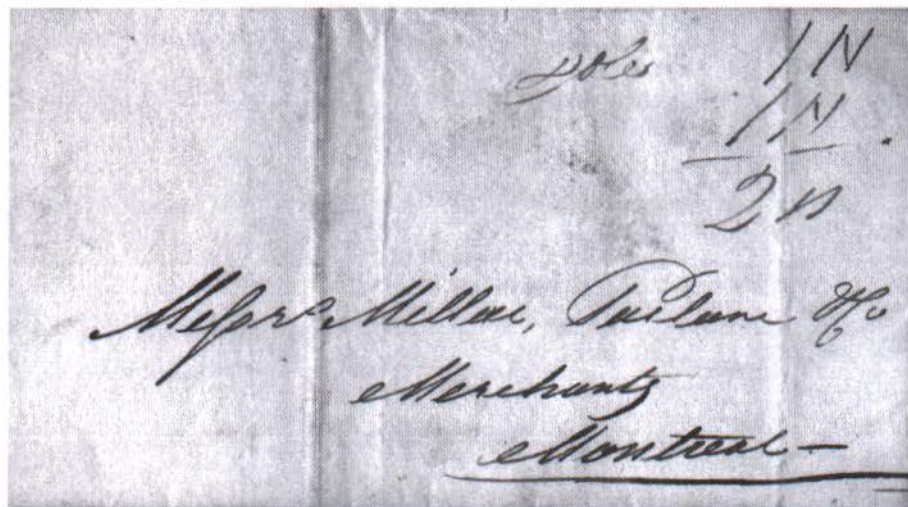 1 N
1 N.
2 n
Messrs Millar, Parlane & Co
Merchants
Montreal